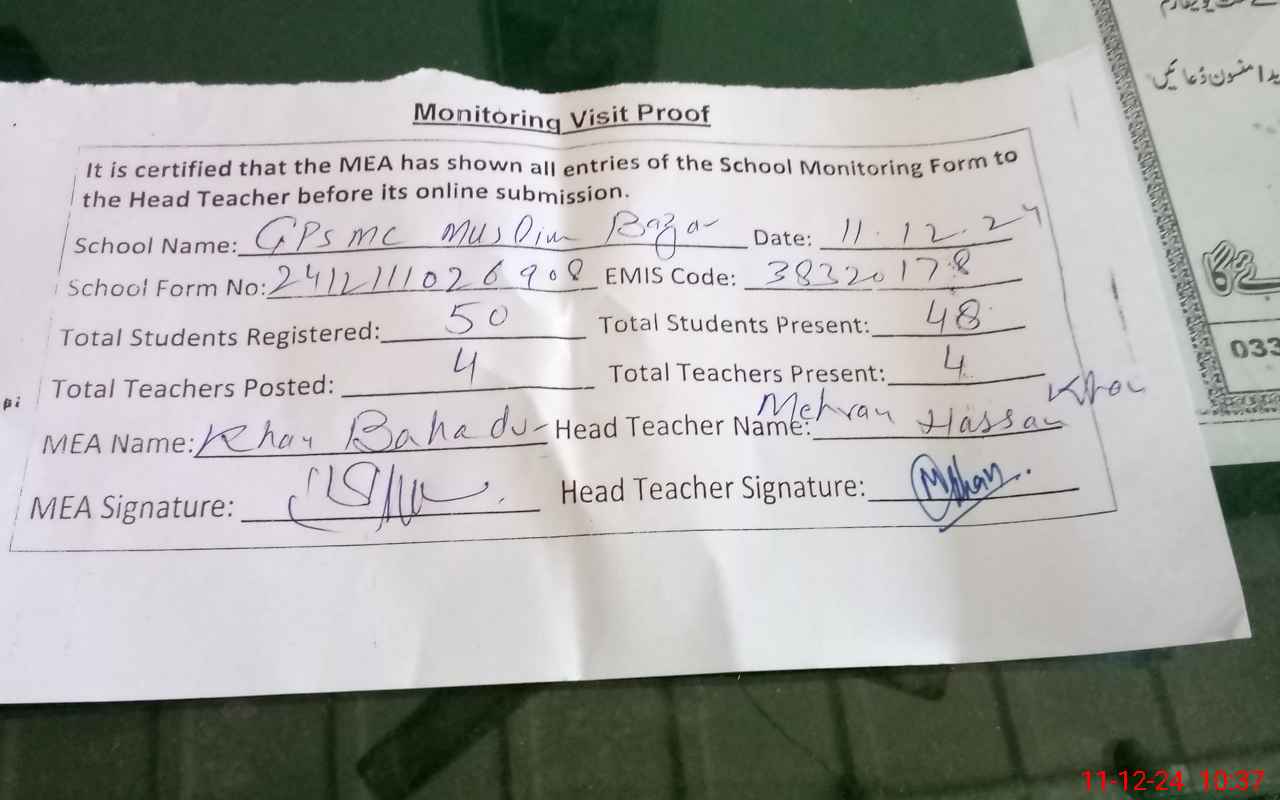 Monitoring Visit Proof
It is certified that the MEA has shown all entries of the School Monitoring Form to
the Head Teacher before its online submission.
School Name: GPS MC Muslim Bazar Date: 11.12.24
School Form No: 2412111026908 EMIS Code: 38320178
Total Students Registered: 50 Total Students Present: 48
Total Teachers Posted: 4 Total Teachers Present: 4
MEA Name: Khan Bahadur Head Teacher Name: Mehran Hassan Khan
MEA Signature: Head Teacher Signature:
دعائیں
033
11-12-24 10:37